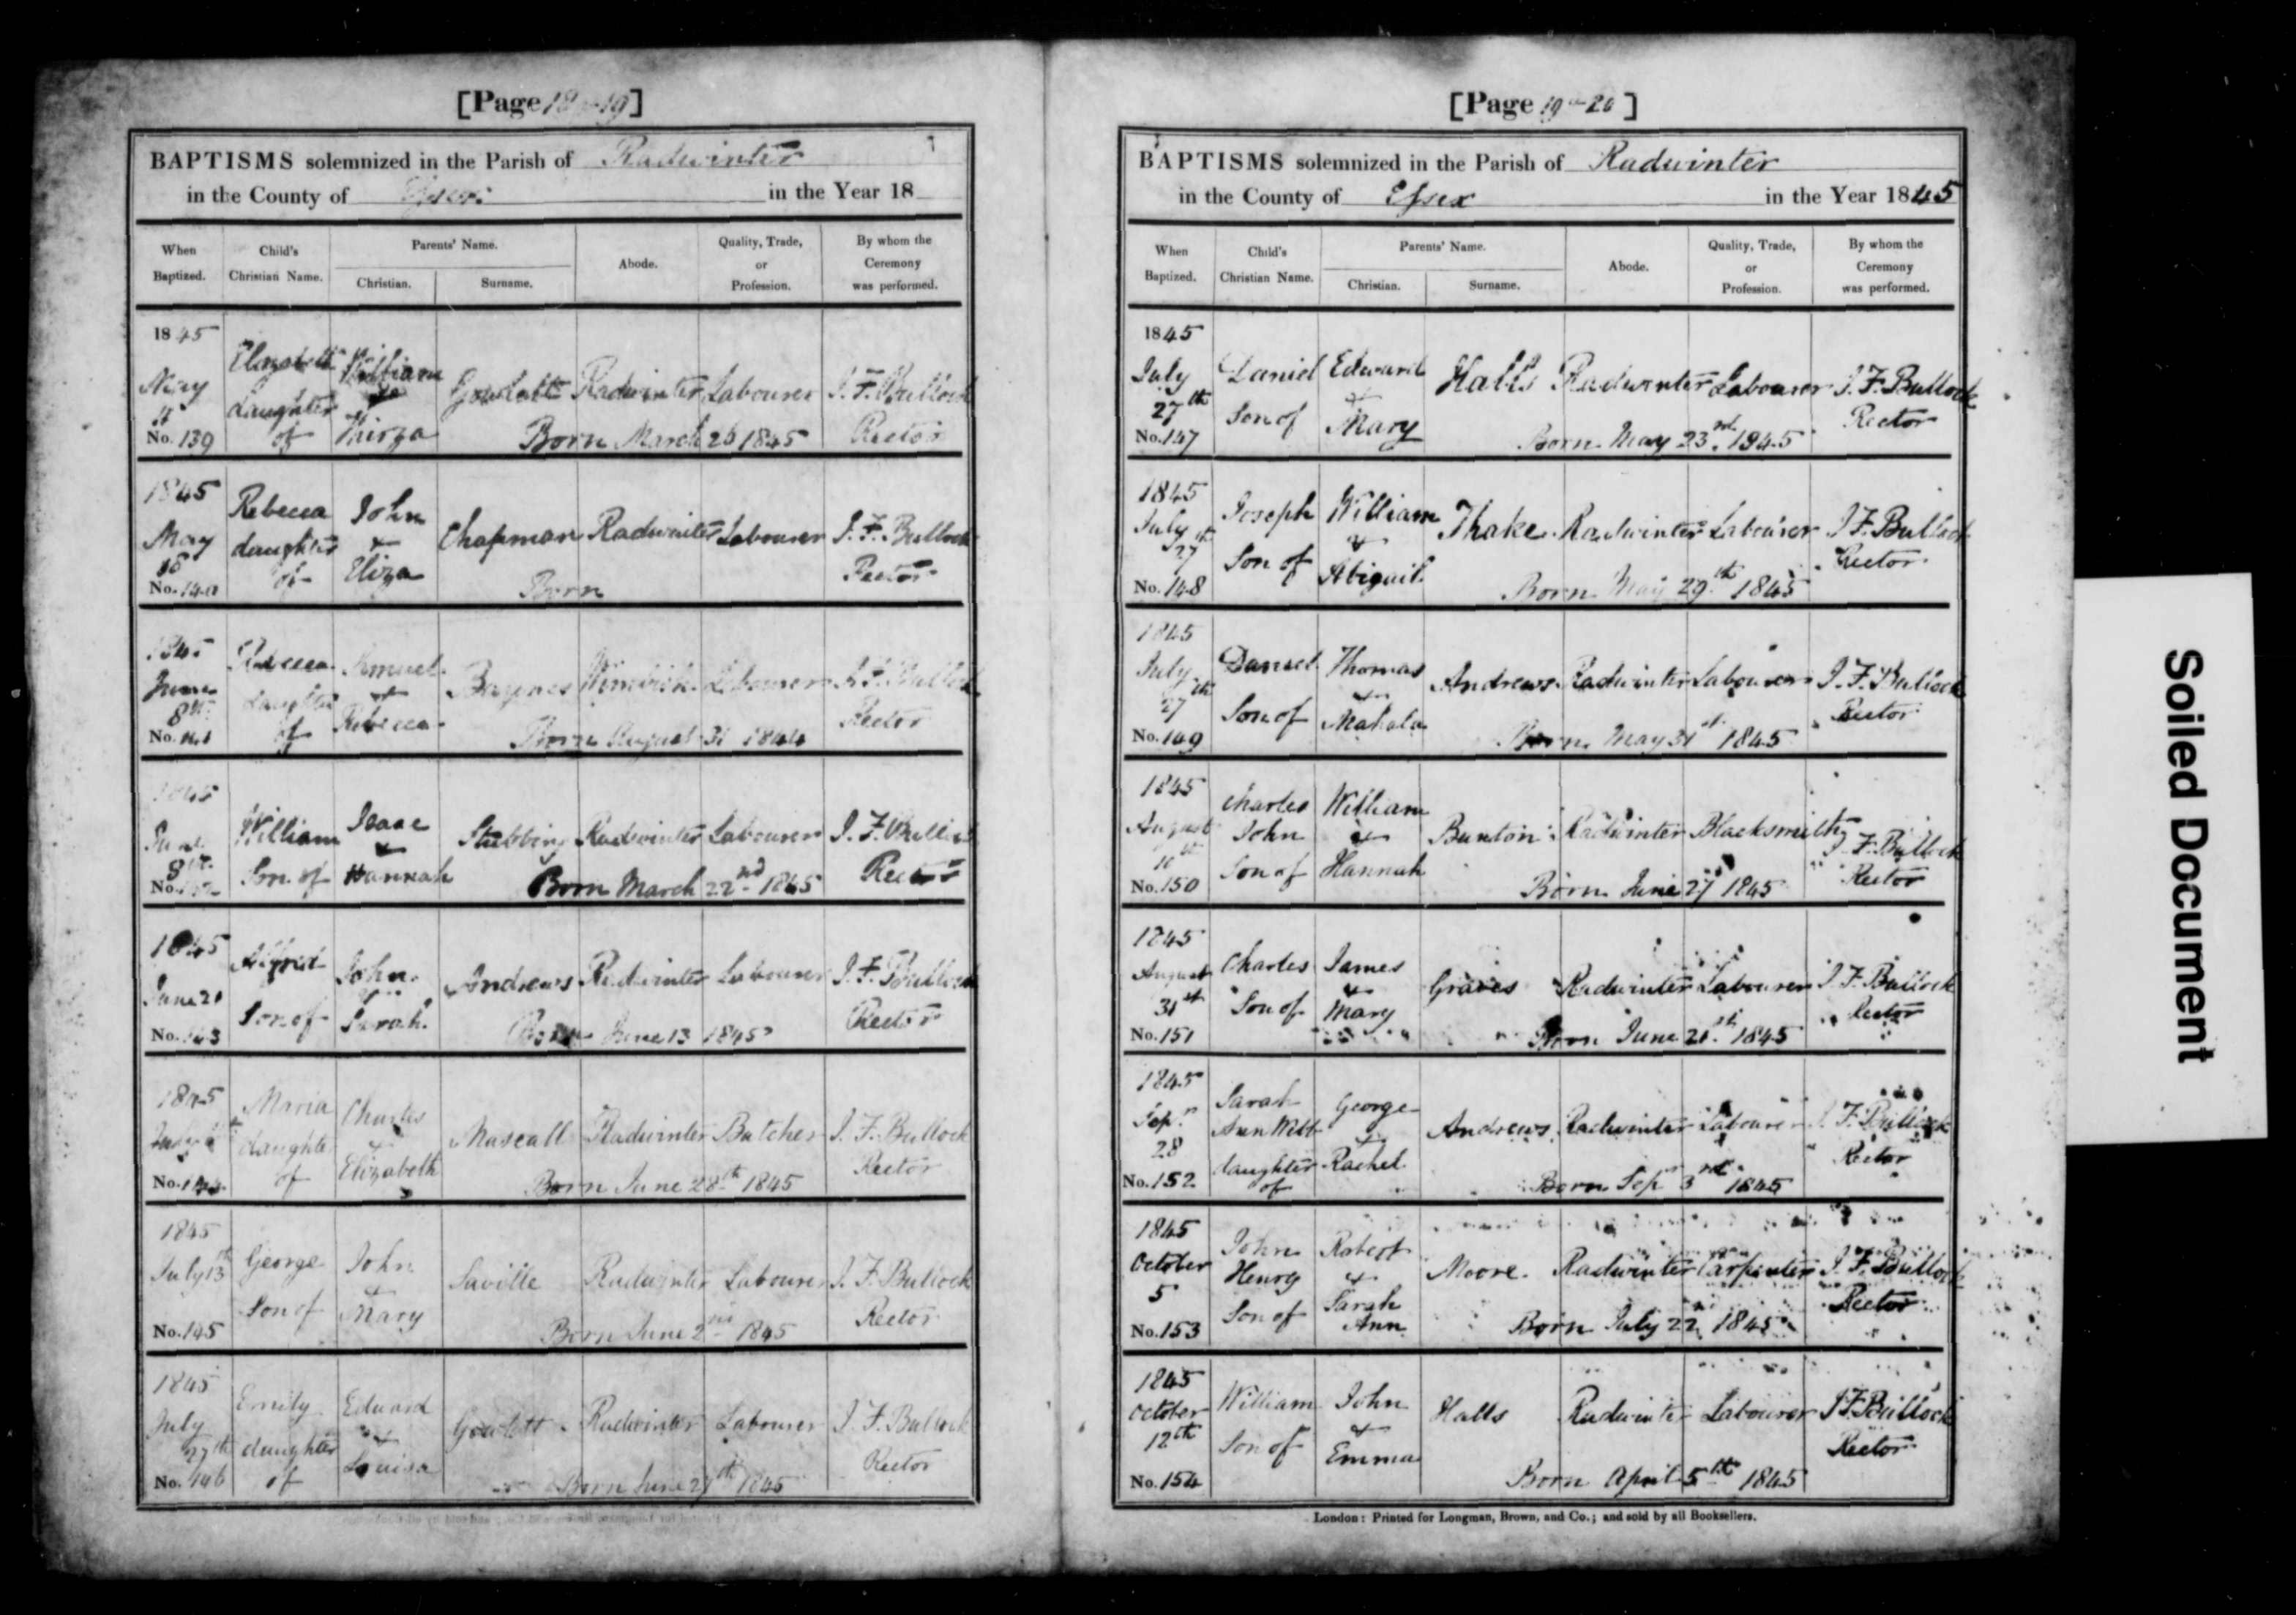 [Page 18 - 19]
BAPTISMS solemnized in the Parish of Radwinter
in the County of Essex in the Year 18
When Baptized. Child's Christian Name. Parents' Name. Christian. Surname. Abode. Quality, Trade, or Profession. By whom the Ceremony was performed.
1845
May
No. 139
Elizabeth daughter of
William & Thirza
Gowlett Radwinter Labourer J. F. Bullock
Born March 26 1845 Rector
1845
May
No. 140
Rebecca daughter of
John & Eliza
Chapman Radwinter Labourer J. F. Bullock
Born Rector
1845
June
8th
No. 141
Rebecca daughter of
Samuel & Rebecca
Baynes Labourer J. F. Bullock
Born August 31 1844 Rector
1845
June
8th
No. 142
William Son of
Isaac & Hannah
Stebbing Radwinter Labourer J. F. Bullock
Born March 22nd 1845 Rector
1845
June
No. 143
Alfred Son of
John & Sarah
Andrews Radwinter Labourer J. F. Bullock
Born June 13 1845 Rector
1845
July
No. 144
Maria daughter of
Charles & Elizabeth
Mascall Radwinter Butcher J. F. Bullock
Born June 28th 1845 Rector
1845
July 13th
No. 145
George Son of
John & Mary
Saville Radwinter Labourer J. F. Bullock
Born June 2nd 1845 Rector
1845
July
27th
No. 146
Emily daughter of
Edward & Louisa
Gowlett Radwinter Labourer J. F. Bullock
Born June 27th 1845 Rector
[Page 19 - 20]
BAPTISMS solemnized in the Parish of Radwinter
in the County of Essex in the Year 1845
When Baptized. Child's Christian Name. Parents' Name. Christian. Surname. Abode. Quality, Trade, or Profession. By whom the Ceremony was performed.
1845
July
27th
No. 147
Daniel Son of
Edward & Mary
Halls Radwinter Labourer J. F. Bullock
Born May 23rd. 1845 Rector
1845
July
27th
No. 148
Joseph Son of
William & Abigail
Thake Radwinter Labourer J. F. Bullock
Born May 29th 1845 Rector
1845
July
27th
No. 149
Daniel Son of
Thomas & Mahala
Andrews Radwinter Labourer J. F. Bullock
Born May 31st 1845 Rector
1845
August
10th
No. 150
Charles John Son of
William & Hannah
Bunton Radwinter Blacksmith J. F. Bullock
Born June 27 1845 Rector
1845
August
31st
No. 151
Charles Son of
James & Mary
Graves Radwinter Labourer J. F. Bullock
Born June 1845 Rector
1845
Sepr
28
No. 152
Sarah Ann Webb daughter of
George & Rachel
Andrews Radwinter Labourer J. F. Bullock
Born Sepr 3rd 1845 Rector
1845
October
5
No. 153
John Henry Son of
Robert & Sarah Ann
Moore Radwinter Carpenter J. F. Bullock
Born July 22nd 1845 Rector
1845
October
12th
No. 154
William Son of
John & Emma
Halls Radwinter Labourer J. F. Bullock
Born April 5th 1845 Rector
London: Printed for Longman, Brown, and Co.; and sold by all Booksellers.
Soiled Document